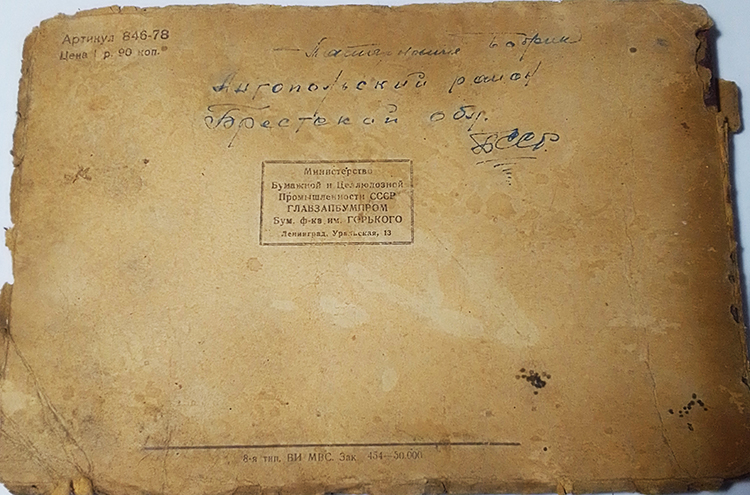 Артикул 846-78
Цена 1 р. 90 коп.
Антопольский район
Брестский обл.
БССР.
Министерство
Бумажной и Целлюлозной
Промышленности СССР
ГЛАВЗАПБУМПРОМ
Бум. ф-ка им. ГОРЬКОГО
Ленинград, Уральская, 13
8-я тип. ВИ МВС. Зак. 454—50.000